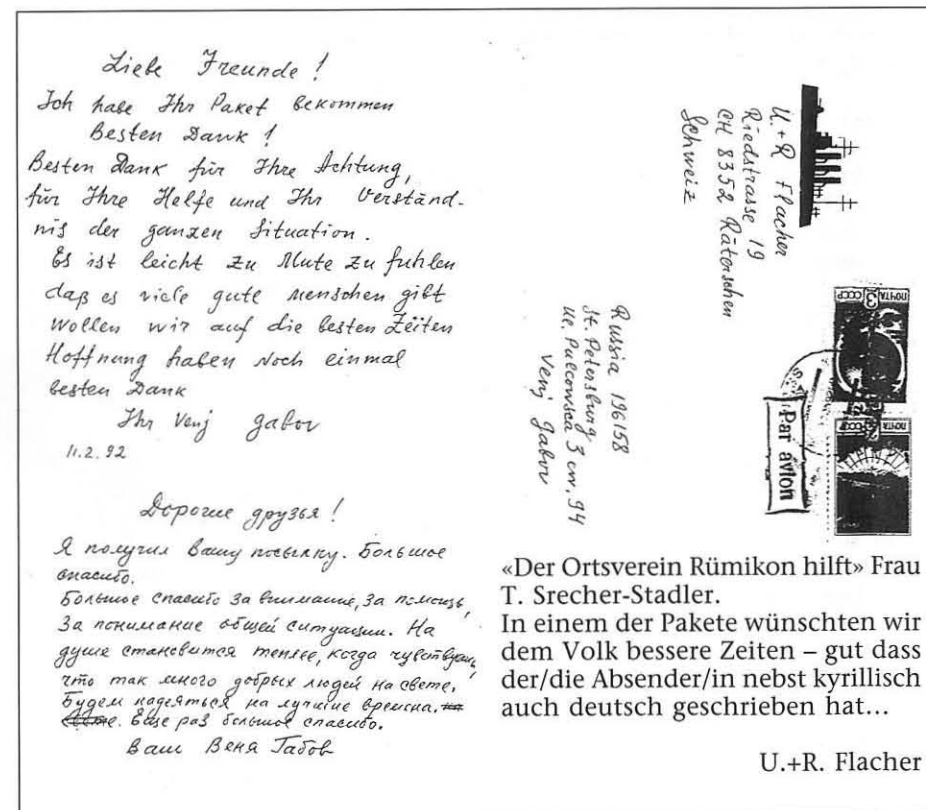 Liebe Freunde!
Ich habe Ihr Paket bekommen
Besten Dank!
Besten Dank für Ihre Achtung,
für Ihre Helfe und Ihr Verständ-
nis der ganzen Situation.
Es ist leicht zu Mute zu fuhlen
daß es viele gute menschen gibt
Wollen wir auf die besten Zeiten
Hoffnung haben Noch einmal
besten Dank
Ihr Venj Gabov
11.2.92
Дорогие друзья!
Я получил Вашу посылку. Большое
спасибо.
Большое спасибо за внимание, за помощь,
За понимание общей ситуации. На
душе становится теплее, когда чувствуешь,
что так много добрых людей на свете.
Будем надеяться на лучшие времена. на
свете. Еще раз большое спасибо.
Ваш Веня Габов
U.+R Flacher
Riedstrasse 19
CH 8352 Räterschen
Schweiz
Russia 196158
St. Petersburg
Ul. Pulcowsca 3 cw. 94
Venj Gabov
ПОЧТА СССР
3
Par avion
ПОЧТА СССР
«Der Ortsverein Rümikon hilft» Frau
T. Srecher-Stadler.
In einem der Pakete wünschten wir
dem Volk bessere Zeiten – gut dass
der/die Absender/in nebst kyrillisch
auch deutsch geschrieben hat...
U.+R. Flacher